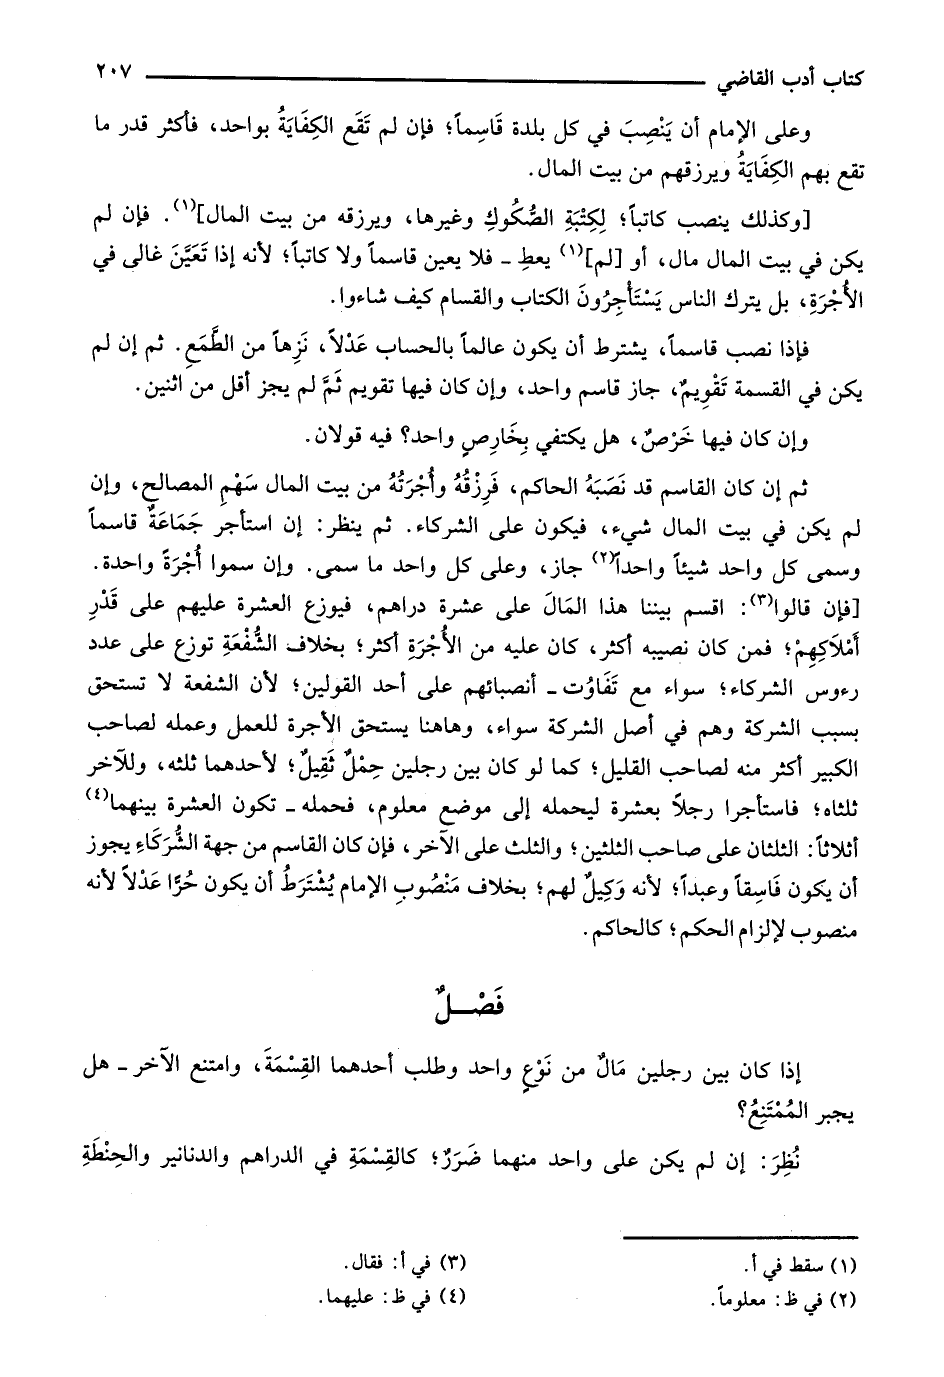 كتاب أدب القاضي ٢٠٧
وعلى الإمام أن يَنْصِبَ في كل بلدة قَاسِماً؛ فإن لم تَقَع الكِفَايَةُ بواحد، فأكثر قدر ما
تقع بهم الكِفَايَةُ ويرزقهم من بيت المال.
[وكذلك ينصب كاتباً؛ لِكِتْبَةِ الصُّكُوكِ وغيرها، ويرزقه من بيت المال](١). فإن لم
يكن في بيت المال مال، أو [لم](١) يعطِ ـ فلا يعين قاسماً ولا كاتباً؛ لأنه إذا تَعَيَّنَ غالى في
الأُجْرَةِ، بل يترك الناس يَسْتَأْجِرُونَ الكتاب والقسام كيف شاءوا.
فإذا نصب قاسماً، يشترط أن يكون عالماً بالحساب عَدْلاً، نَزِهاً من الطَّمَعِ. ثم إن لم
يكن في القسمة تَقْوِيمٌ، جاز قاسم واحد، وإن كان فيها تقويم ثَمَّ لم يجز أقل من اثنين.
وإن كان فيها خَرْصٌ، هل يكتفي بِخَارِصٍ واحد؟ فيه قولان.
ثم إن كان القاسم قد نَصَبَهُ الحاكم، فَرِزْقُهُ وأُجْرَتُهُ من بيت المال سَهْمِ المصالح، وإن
لم يكن في بيت المال شيء، فيكون على الشركاء. ثم ينظر: إن استأجر جَمَاعَةٌ قاسماً
وسمى كل واحد شيئاً واحداً(٢) جاز، وعلى كل واحد ما سمى. وإن سموا أُجْرَةً واحدة.
[فإن قالوا(٣): اقسم بيننا هذا المَالَ على عشرة دراهم، فيوزع العشرة عليهم على قَدْرِ
أَمْلَاكِهِمْ؛ فمن كان نصيبه أكثر، كان عليه من الأُجْرَةِ أكثر؛ بخلاف الشُّفْعَةِ توزع على عدد
رءوس الشركاء؛ سواء مع تَفَاوُت ـ أنصبائهم على أحد القولين؛ لأن الشفعة لا تستحق
بسبب الشركة وهم في أصل الشركة سواء، وهاهنا يستحق الأجرة للعمل وعمله لصاحب
الكبير أكثر منه لصاحب القليل؛ كما لو كان بين رجلين حِمْلٌ ثَقِيلٌ؛ لأحدهما ثلثه، وللآخر
ثلثاه؛ فاستأجرا رجلاً بعشرة ليحمله إلى موضع معلوم، فحمله ـ تكون العشرة بينهما(٤)
أثلاثاً: الثلثان على صاحب الثلثين؛ والثلث على الآخر، فإن كان القاسم من جهة الشُّرَكَاءِ يجوز
أن يكون فَاسِقاً وعبداً؛ لأنه وَكِيلٌ لهم؛ بخلاف مَنْصُوبِ الإمام يُشْتَرَطُ أن يكون حُرًّا عَدْلاً لأنه
منصوب لإلزام الحكم؛ كالحاكم.
فَصْــلٌ
إذا كان بين رجلين مَالٌ من نَوْعٍ واحد وطلب أحدهما القِسْمَةَ، وامتنع الآخر ـ هل
يجبر المُمْتَنِعُ؟
نُظِرَ: إن لم يكن على واحد منهما ضَرَرٌ؛ كالقِسْمَةِ في الدراهم والدنانير والحِنْطَةِ
(١) سقط في أ.
(٢) في ظ: معلوماً.
(٣) في أ: فقال.
(٤) في ظ: عليهما.